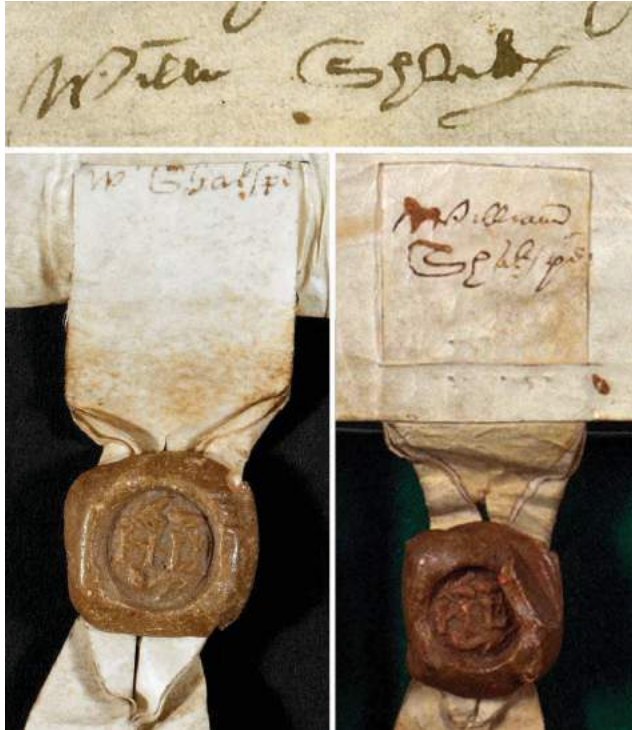 Willm Shakp
Wm Shakspē
William
Shakspēr